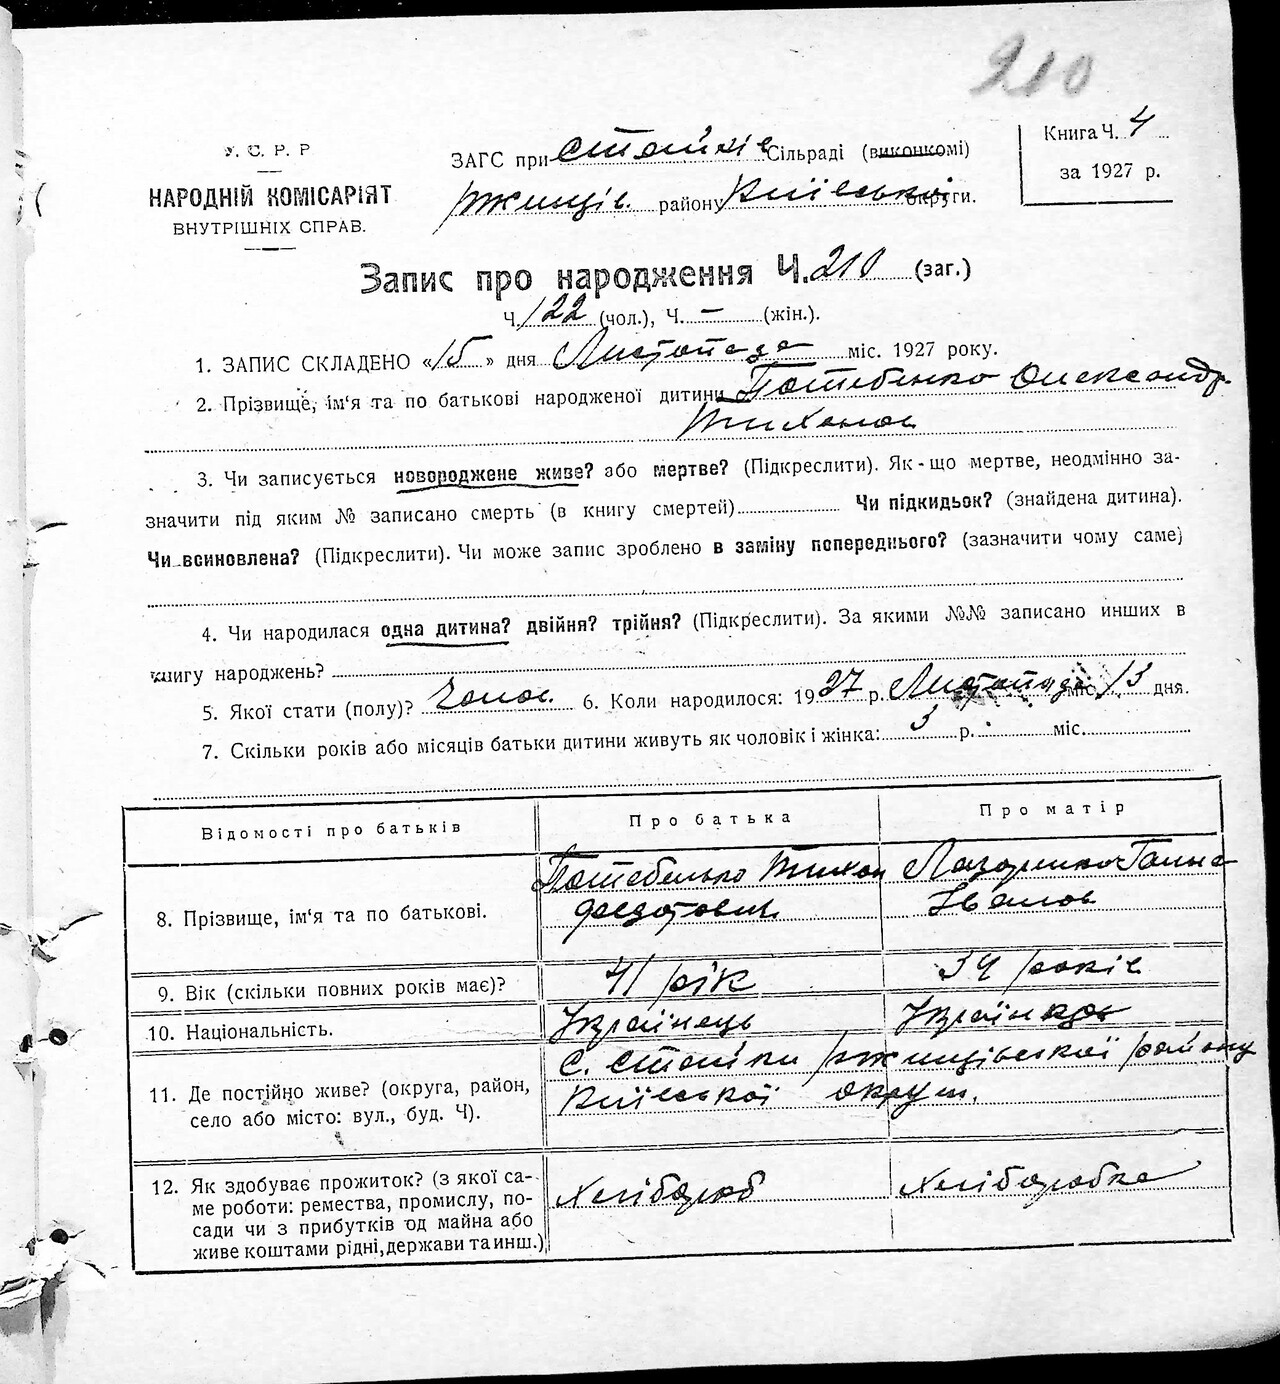 210
У. С. Р. Р
НАРОДНІЙ КОМІСАРІЯТ
ВНУТРІШНІХ СПРАВ.
ЗАГС при Стайків Сільраді (виконкомі)
Ржищів. району Київської округи.
Книга Ч. 4
за 1927 р.
Запис про народження Ч. 210 (заг.)
Ч. 122 (чол.), Ч. — (жін.).
1. ЗАПИС СКЛАДЕНО «15» дня Листопада міс. 1927 року.
2. Прізвище, ім'я та по батькові народженої дитини Потебенко Олександр.
Тихонов
3. Чи записується новороджене живе? або мертве? (Підкреслити). Як-що мертве, неодмінно за-
значити під яким № записано смерть (в книгу смертей) Чи підкидьок? (знайдена дитина).
Чи всиновлена? (Підкреслити). Чи може запис зроблено в заміну попереднього? (зазначити чому саме)
4. Чи народилася одна дитина? двійня? трійня? (Підкреслити). За якими №№ записано инших в
книгу народжень?
5. Якої стати (полу)? Чолов. 6. Коли народилося: 1927 р. Листопада міс. 13 дня.
7. Скільки років або місяців батьки дитини живуть як чоловік і жінка: 3 р. міс.
Відомості про батьків
Про батька
Про матір
8. Прізвище, ім'я та по батькові.
Потебенько Тихон
Федотович
Лазаренко Ганна
Іванов
9. Вік (скільки повних років має)?
41 рік
34 років
10. Національність.
Українець
Українка
11. Де постійно живе? (округа, район,
село або місто: вул., буд. Ч).
С. Стайки Ржищівської району
Київської округи.
12. Як здобуває прожиток? (з якої са-
ме роботи: ремества, промислу, по-
сади чи з прибутків од майна або
живе коштами рідні, держави та инш.)
Хлібороб
Хліборобка